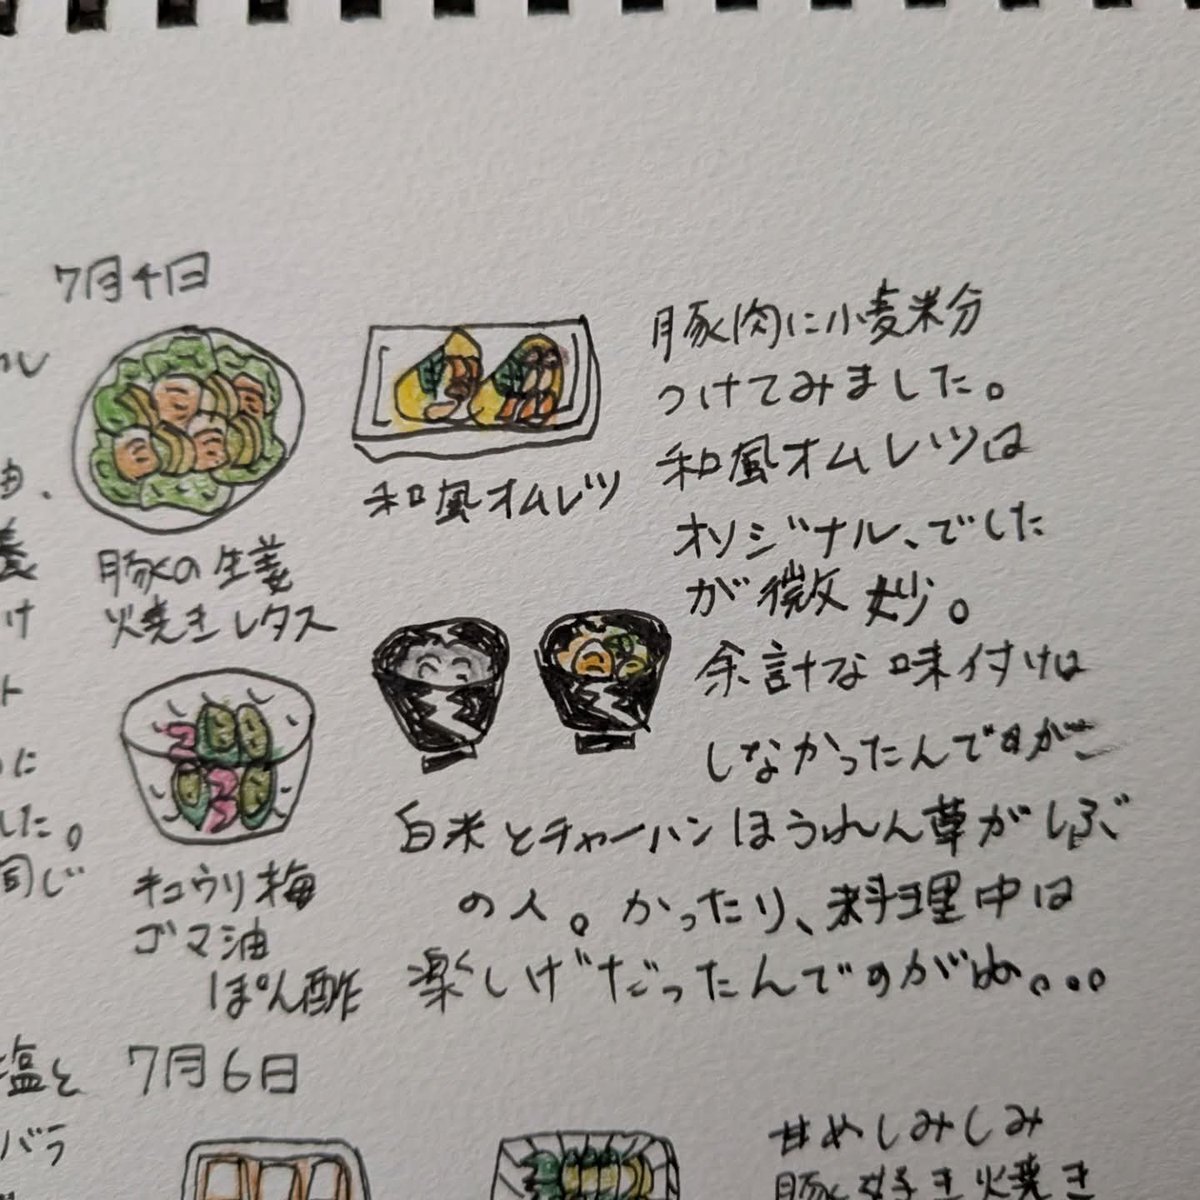 7月4日
豚の生姜
焼きレタス
和風オムレツ
キュウリ梅
ゴマ油
ぽん酢
豚肉に小麦粉
つけてみました。
和風オムレツは
オリジナル、でした
が微妙。
余計な味付けは
しなかったんですが
白米とチャーハンほうれん草が
の人。かったり、料理中は
楽しげだったんですがぬ。。。
ル
油、
け
ト
に
した。
同じ
塩と
バラ
7月6日
しみしみ
豚好き焼き